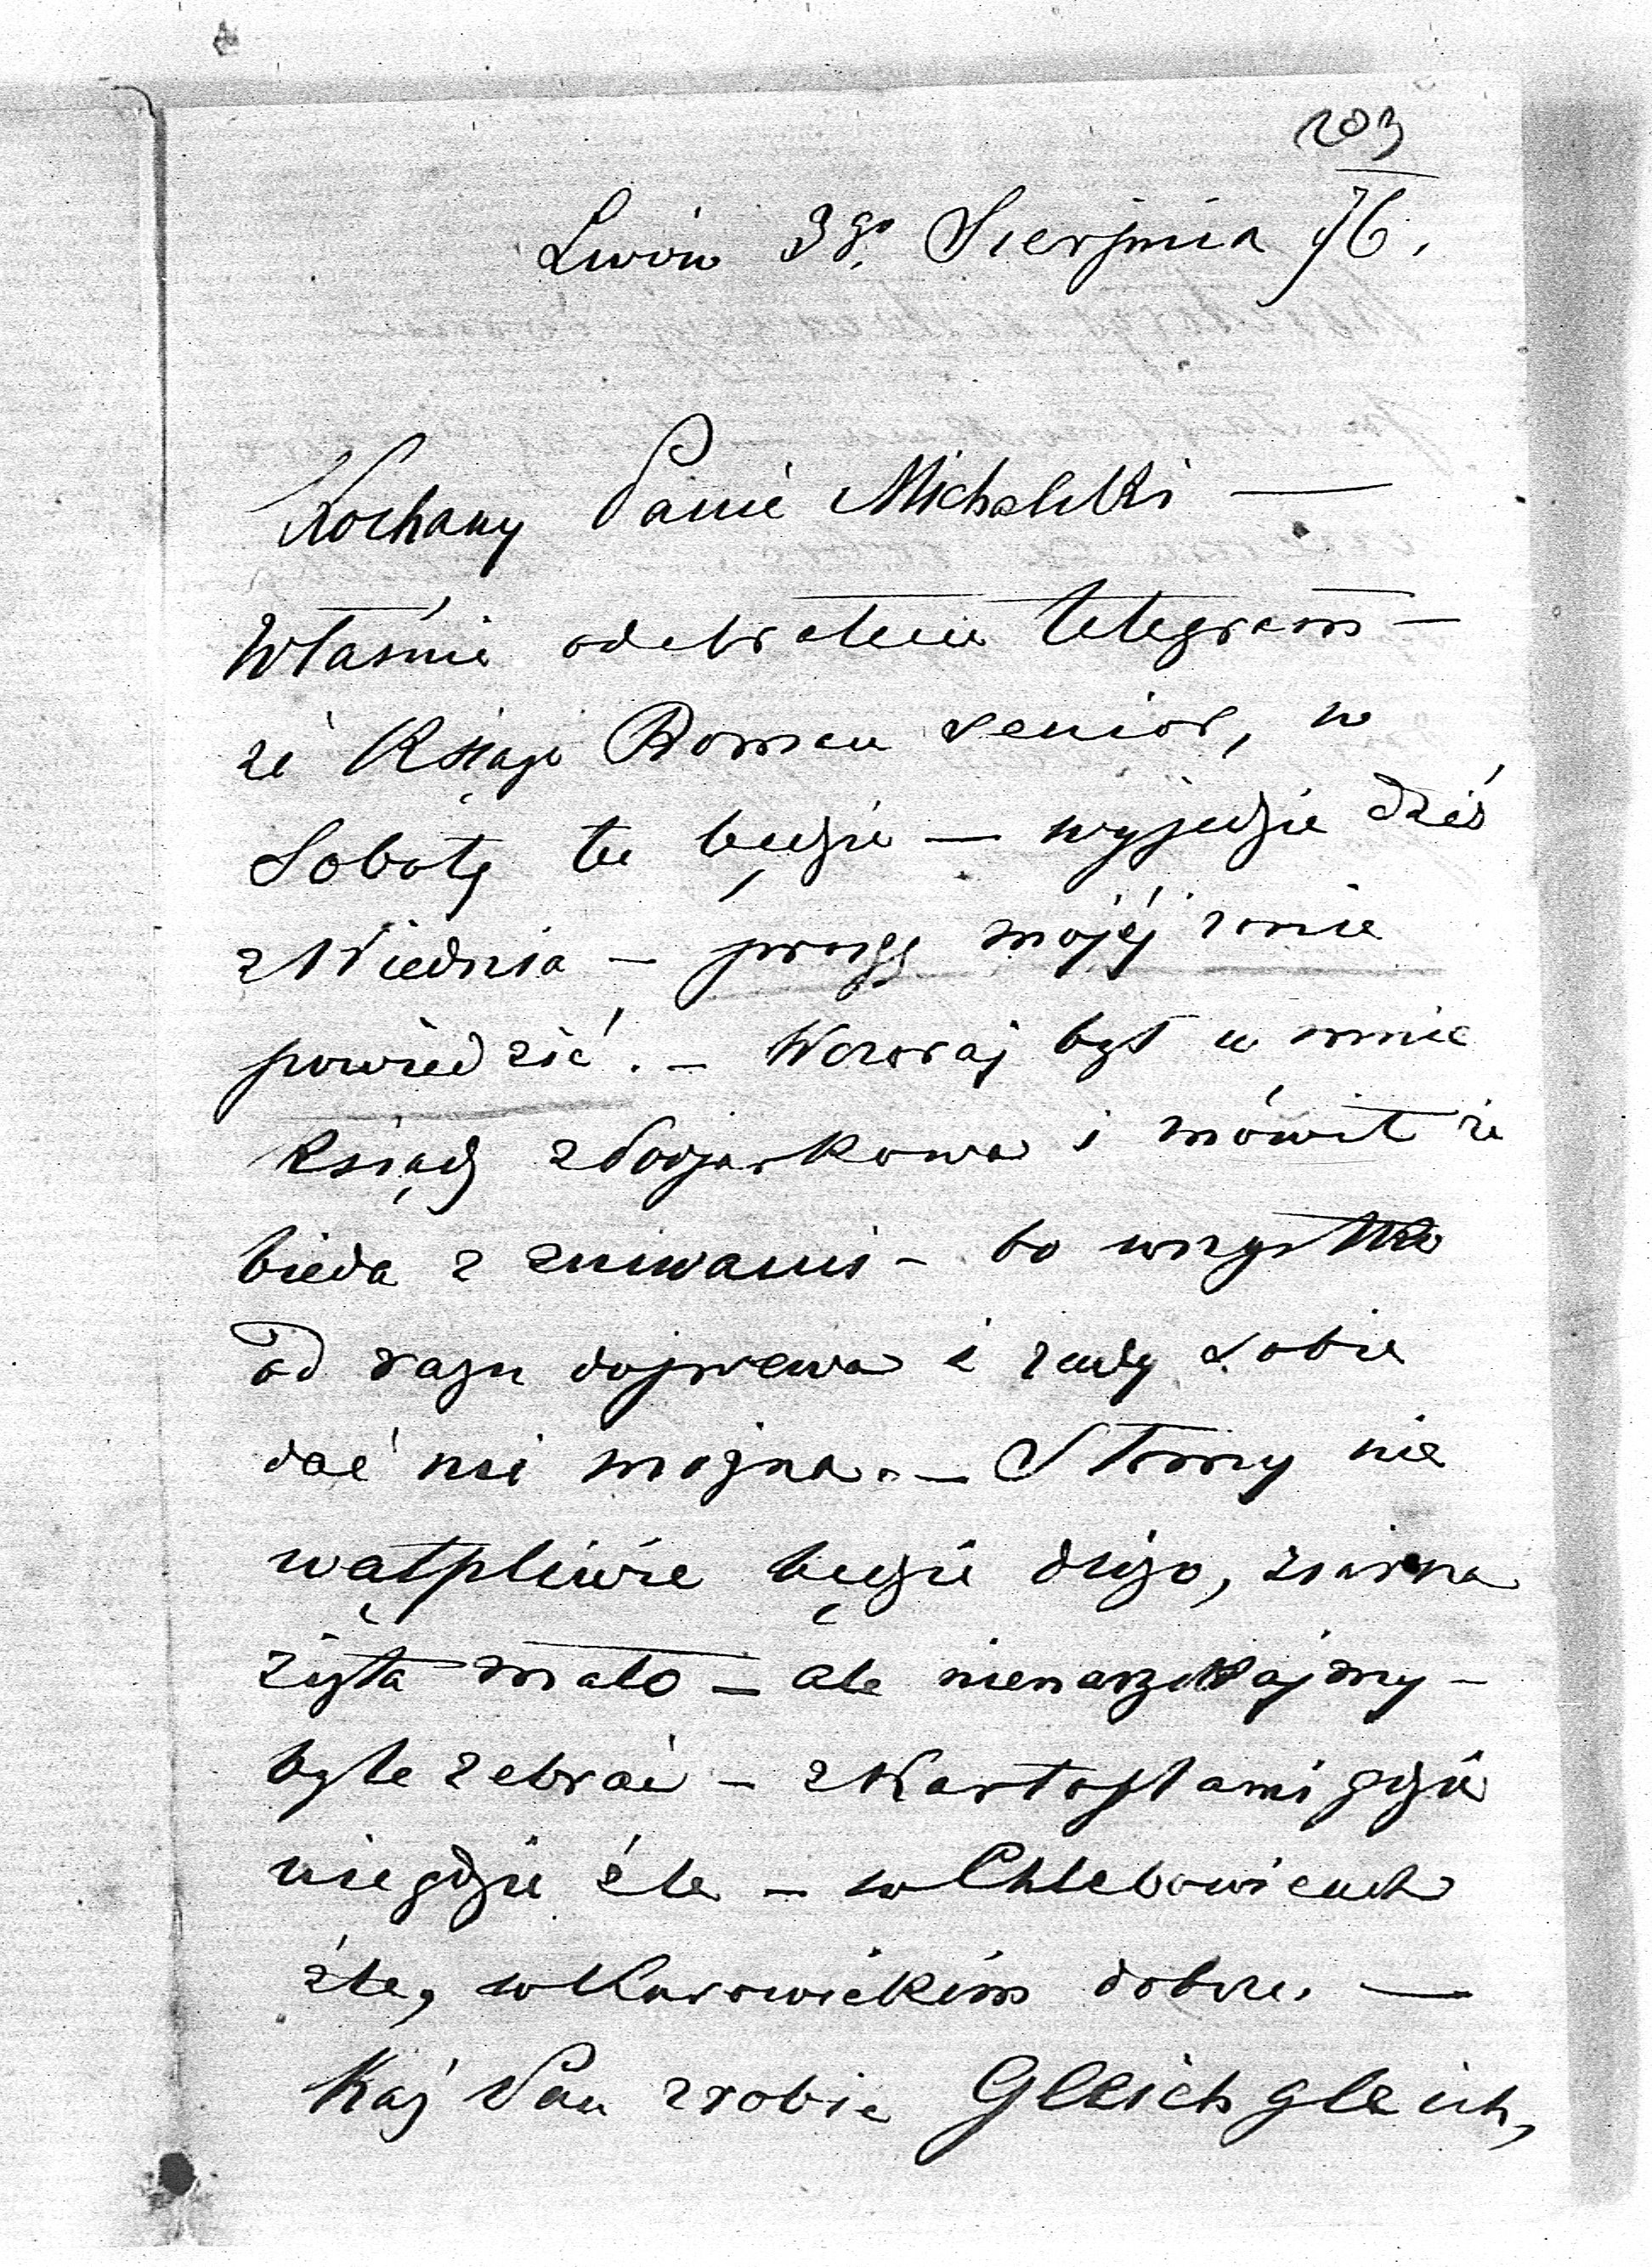 203
Lwów 3go Sierpnia 76.
Kochany Panie Michalski —
Właśnie odebrałem telegram —
że Książe Roman senior, w
Sobotę tu będzie — wyjedzie dziś
z Wiednia — proszę mojéj żonie
powiedzić. — Wczoraj był u mnie
Ksiądz z i mówił że
bieda z zniwami — bo wszystko
od razu dojrzewa i rady sobie
dać nie można. — Słomy nie
wątpliwie będzie dużo, ziarna
żyta mało — ale nienarzekajmy —
byle zebrać — z Kartoflami gdzie
niegdzie źle — w Chlebowicach
źle, w Kurowickim dobrze. —
Każ Pan zrobić Gleich gleich,